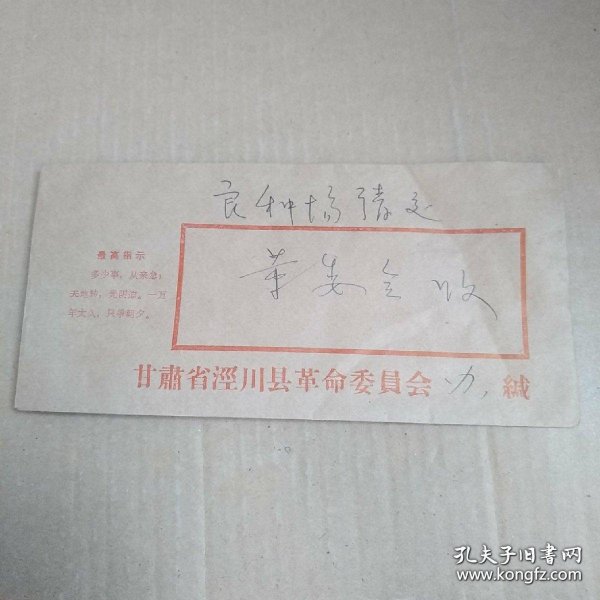 良种场请交
最高指示
多少事，从来急；
天地转，光阴迫。一万
年太久，只争朝夕。
革委会 收
甘肅省涇川县革命委員会 办. 缄
孔夫子旧書网
www.kongfz.com